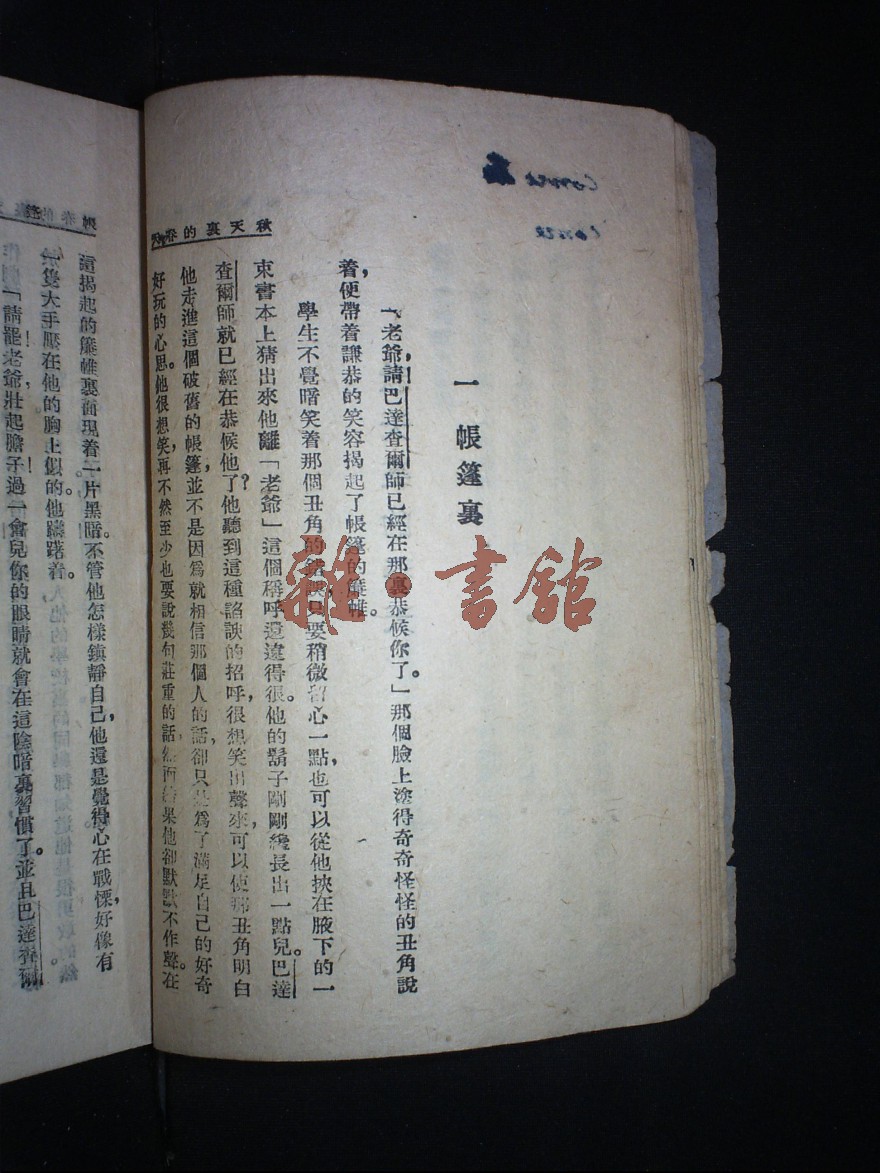 秋天裏的春天
一 帳篷裏
「老爺，請，巴達查爾師已經在那裏恭候你了。」那個臉上塗得奇奇怪怪的丑角說
着，便帶着謙恭的笑容揭起了帳篷的簾帷。
學生不覺暗笑着那個丑角的錯誤，只要稍微留心一點，也可以從他挾在腋下的一
束書本上猜出來他離「老爺」這個稱呼還遠得很。他的鬍子剛剛纔長出一點兒。巴達
查爾師就已經在恭候他了？他聽到這種諂諛的招呼，很想笑出聲來，可以使那丑角明白
他走進這個破舊的帳篷，並不是因爲就相信那個人的話，卻只是爲了滿足自己的好奇
好玩的心思。他很想笑，再不然至少也要說幾句莊重的話，然而結果他卻默默不作聲。在
這揭起的簾帷裏面現着一片黑暗。不管他怎樣鎮靜自己，他還是覺得心在戰慄，好像有
隻大手壓在他的胸上似的。他躊躇着。
「請罷，老爺，壯起膽子，過一會兒你的眼睛就會在這陰暗裏習慣了。並且巴達查爾
雜·書館